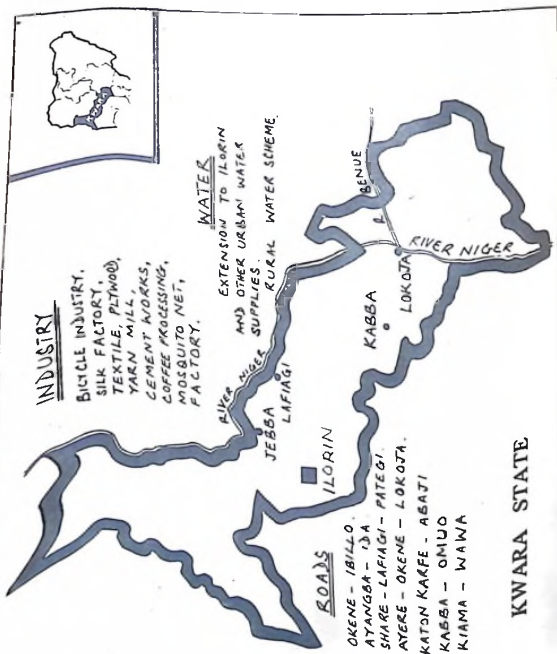 INDUSTRY
BICYCLE INDUSTRY,
SILK FACTORY,
TEXTILE, PLYWOOD,
YARN MILL,
CEMENT WORKS,
COFFEE PROCESSING,
MOSQUITO NET,
FACTORY.
WATER
EXTENSION TO ILORIN
AND OTHER URBAN WATER
SUPPLIES.
RURAL WATER SCHEME.
RIVER NIGER
JEBBA
LAFIAGI
ILORIN
KABBA
LOKOJA
R. BENUE
RIVER NIGER
ROADS
OKENE - IBILLO.
AYANGBA - IDA
SHARE - LAFIAGI - PATEGI.
AYERE - OKENE - LOKOJA.
KATON KARFE - ABAJI
KABBA - OMUO
KIAMA - WAWA
KWARA STATE